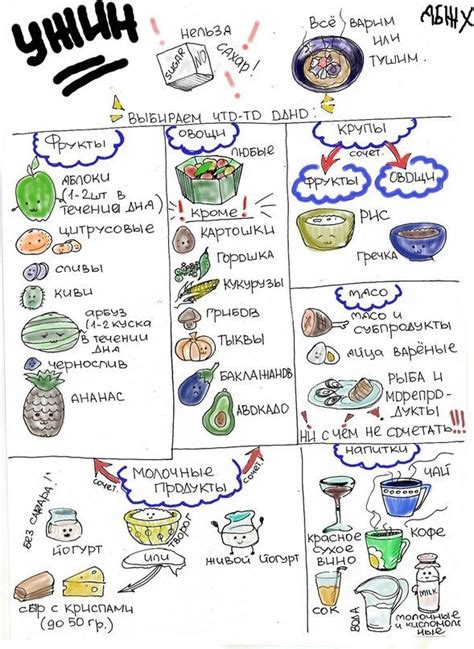 УЖИН
НЕЛЬЗЯ
САХАР!
SUGAR
NO
ВСЁ ВАРИМ
ИЛИ
ТУШИМ.
АБЖХ
ВЫБИРАЕМ ЧТО-ТО ОДНО:
ФРУКТЫ
ЯБЛОКИ
(1-2ШТ В
ТЕЧЕНИИ ДНЯ)
ЦИТРУСОВЫЕ
СЛИВЫ
КИВИ
АРБУЗ
(1-2 КУСКА
В ТЕЧЕНИИ
ДНЯ
ЧЕРНОСЛИВ
АНАНАС
ОВОЩИ
ЛЮБЫЕ
КРОМЕ
КАРТОШКИ
ГОРОШКА
КУКУРУЗЫ
ГРИБОВ
ТЫКВЫ
БАКЛАЖАНОВ
АВОКАДО
КРУПЫ
СОЧЕТ.
ФРУКТЫ
ОВОЩИ
РИС
ГРЕЧКА
МЯСО
МЯСО И
СУБПРОДУКТЫ
ЯЙЦА ВАРЁНЫЕ
РЫБА И
МОРЕПРО-
ДУКТЫ
НИ С ЧЕМ НЕ СОЧЕТАТЬ!!!
МОЛОЧНЫЕ
ПРОДУКТЫ
СОЧЕТ.
СОЧЕТ.
БЕЗ САХАРА!!
ЙОГУРТ
ТВОРОГ
ИЛИ
ЖИВОЙ ЙОГУРТ
СЫР С КРИСПАМИ
(ДО 50 ГР.)
НАПИТКИ
ЧАЙ
КРАСНОЕ
СУХОЕ
ВИНО
КОФЕ
СОК
ВОДА
MILK
МОЛОЧНЫЕ
И КИСЛОМОЛОЧ
НЫЕ